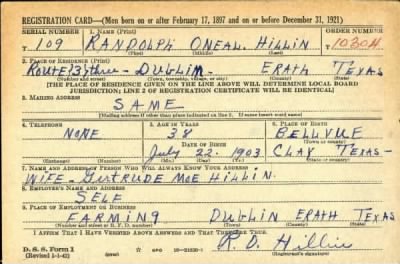 REGISTRATION CARD—(Men born on or after February 17, 1897 and on or before December 31, 1921)
SERIAL NUMBER 1. NAME (Print) ORDER NUMBER
T 109 RANDOLPH ONEAL HILLIN 10304
(First) (Middle) (Last)
2. PLACE OF RESIDENCE (Print)
Route 3) three - DUBLIN - ERATH TEXAS
(Number and street) (Town, township, village, or city) (County) (State)
[THE PLACE OF RESIDENCE GIVEN ON THE LINE ABOVE WILL DETERMINE LOCAL BOARD
JURISDICTION; LINE 2 OF REGISTRATION CERTIFICATE WILL BE IDENTICAL]
3. MAILING ADDRESS
SAME
[Mailing address if other than place indicated on line 2. If same insert word same]
4. TELEPHONE 5. AGE IN YEARS 6. PLACE OF BIRTH
NONE 38 BELLVUE
DATE OF BIRTH (Town or county)
July 23. 1903 CLAY TEXAS -
(Exchange) (Number) (Mo.) (Day) (Yr.) (State or country)
7. NAME AND ADDRESS OF PERSON WHO WILL ALWAYS KNOW YOUR ADDRESS
WIFE - Gertrude Moe Hillin.
8. EMPLOYER'S NAME AND ADDRESS
SELF
9. PLACE OF EMPLOYMENT OR BUSINESS
FARMING DUBLIN ERATH TEXAS
(Number and street or R. F. D. number) (Town) (County) (State)
I AFFIRM THAT I HAVE VERIFIED ABOVE ANSWERS AND THAT THEY ARE TRUE.
D. S. S. Form 1
(Revised 1-1-42) (over) R. O. Hillin
(Registrant's signature)